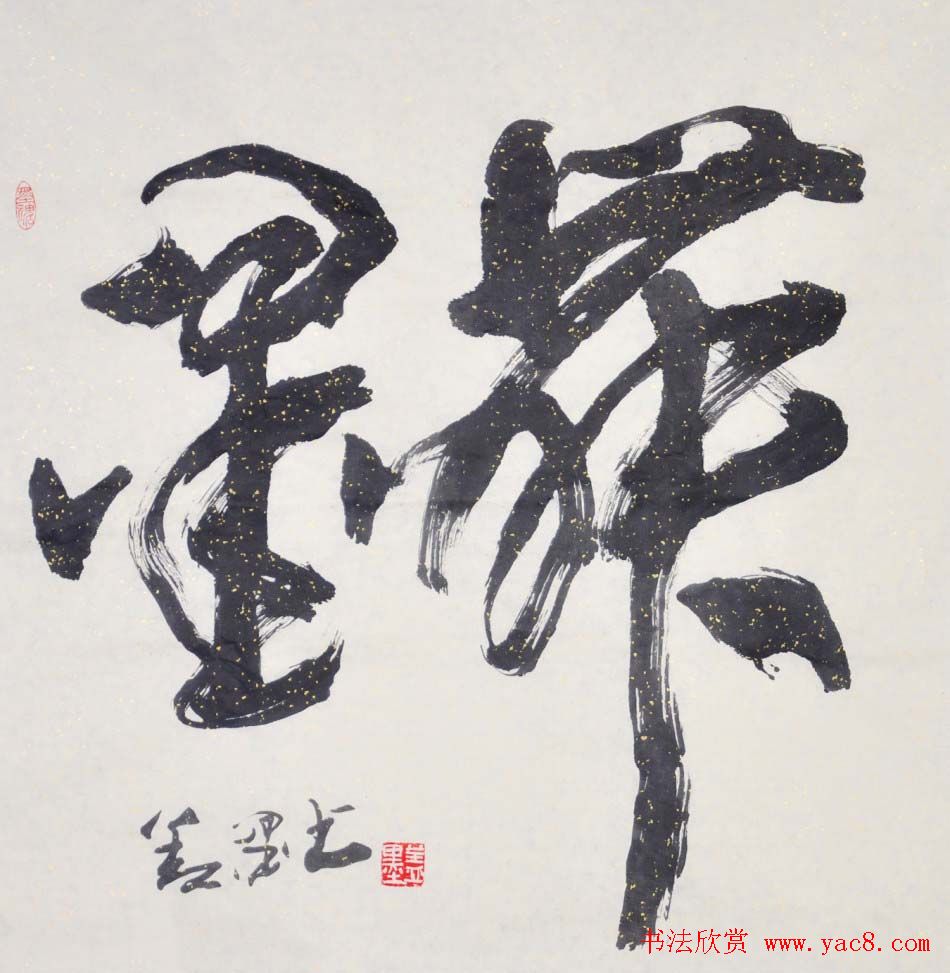 墨舞
墨书
书法欣赏 www.yac8.com